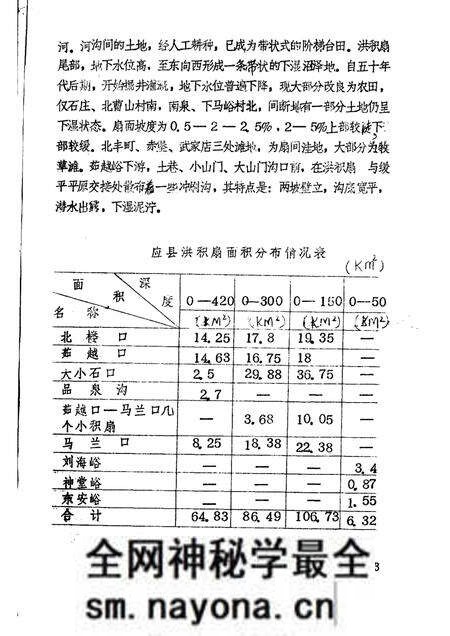 河。河沟间的土地，经人工耕种，已成为带状式的阶梯台田。洪积扇
尾部，地下水位高，至东向西形成一条带状的下湿沼泽地。自五十年
代后期，开始掘井灌溉，地下水位普遍下降，现大部分改良为农田，
仅石庄、北曹山村南，南泉、下马峪村北，间断地有一部分土地仍呈
下湿状态。扇面坡度为0.5—2—2.5%，2—5%上部较陡下
部较缓。北丰町、赤堡、武家店三处滩地，为扇间洼地，大部分为牧
草滩。茹越峪下游，土巷、小山门、大山门沟口前，在洪积扇与缓
平平原交接处散布着一些冲刷沟，其特点是：两坡壁立，沟底宽平，
潜水出露，下湿泥泞。
应县洪积扇面积分布情况表
(Km²)
面积 深度 名称 0—420 0—300 0—150 0—50
(KM²) (KM²) (KM²) (KM²)
北楼口 14.25 17.8 19.35 —
茹越口 14.63 16.75 18 —
大小石口 2.5 29.88 36.75 —
品泉沟 2.7 — — —
茹越口—马兰口几
个小积扇 — 3.68 10.05 —
马兰口 8.25 18.38 22.38 —
刘海峪 — — — 3.4
神堂峪 — — — 0.87
东安峪 — — — 1.55
合计 64.83 86.49 106.73 6.32
全网神秘学最全
sm.nayona.cn
3